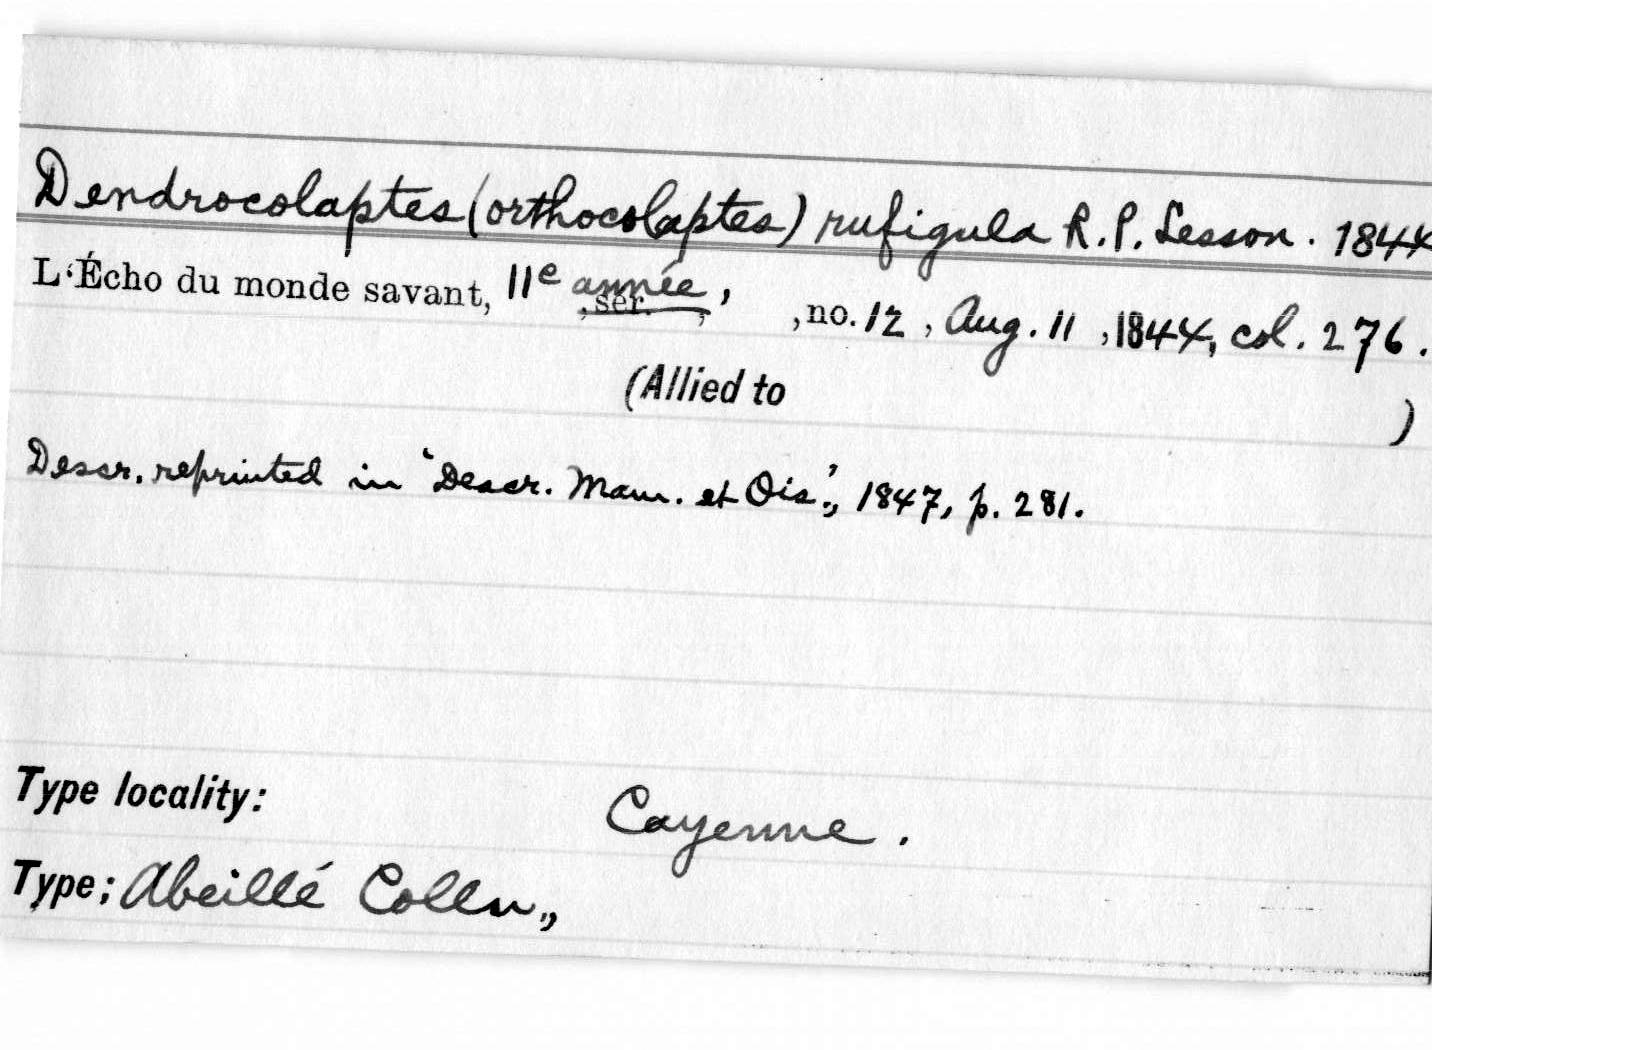 Dendrocolaptes (orthocolaptes) rufigula R.P. Lesson. 1844
L'Écho du monde savant, 11e année, , ser. , , no. 12, Aug. 11, 1844, col. 276.
(Allied to )
Descr. reprinted in 'Descr. Mam. et Ois.', 1847, p. 281.
Type locality: Cayenne.
Type: Abeillé Colln.,